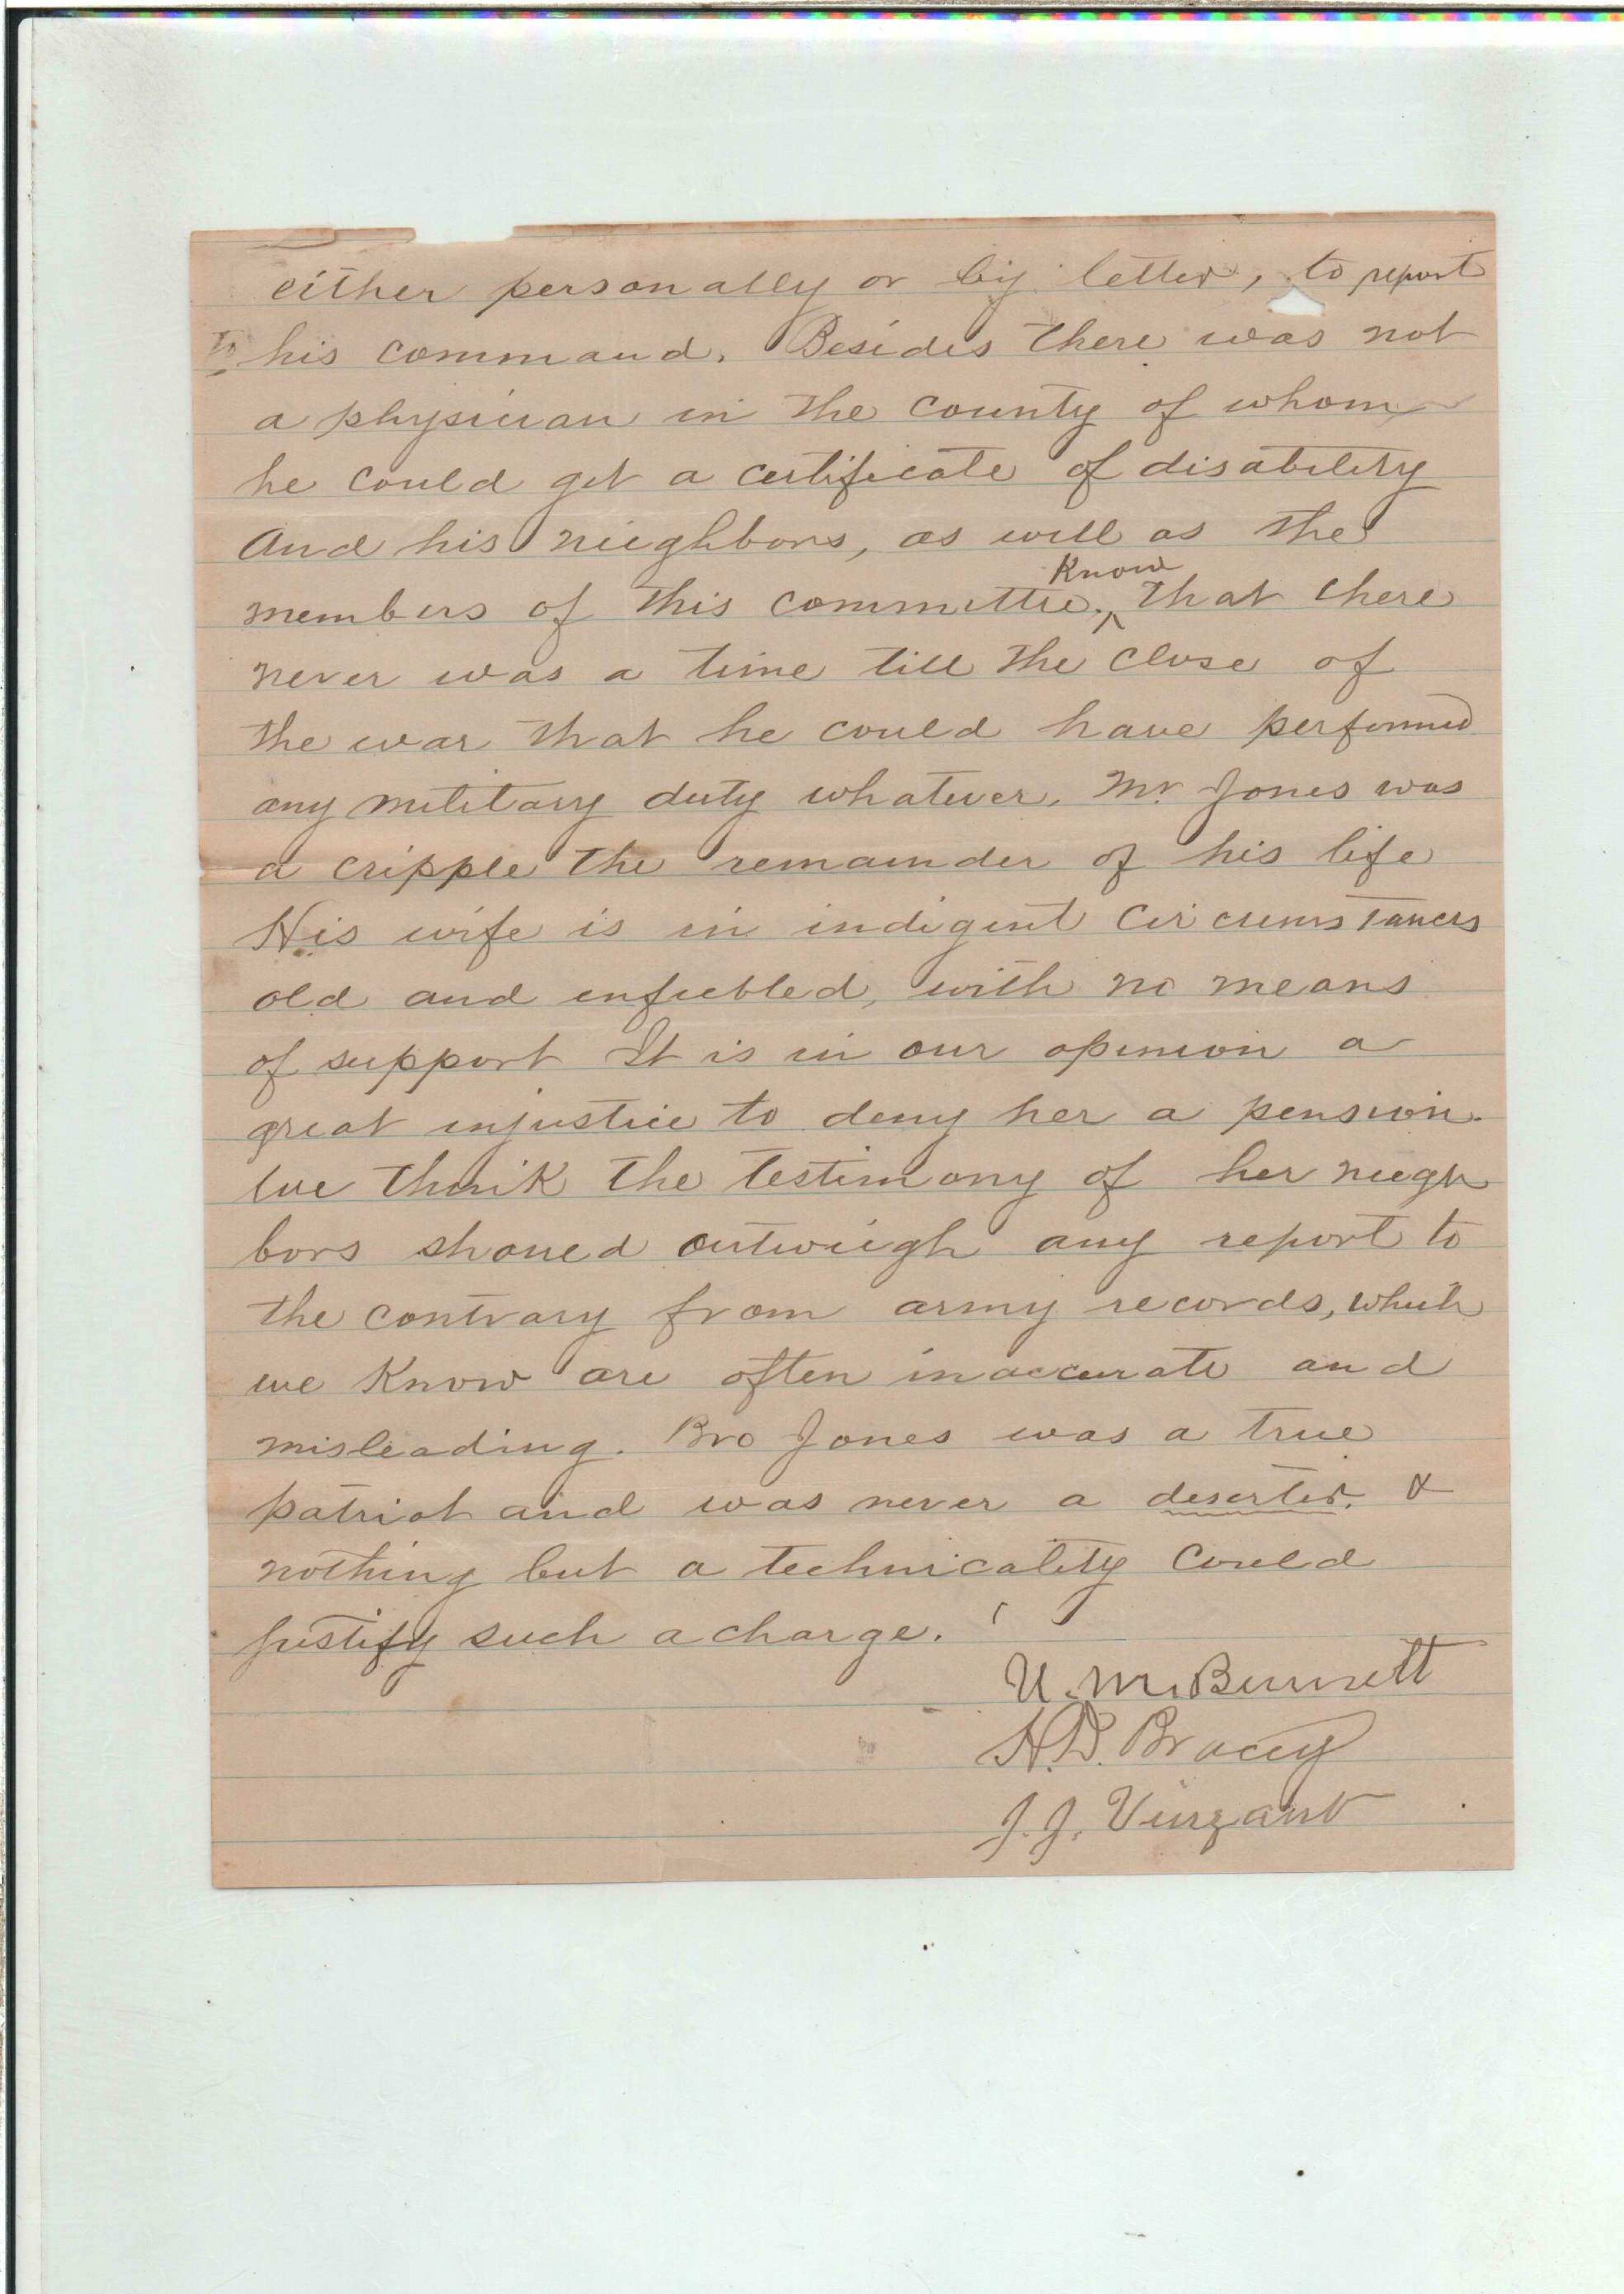 either personally or by letter, to report
to his command. Besides there was not
a physician in the county of whom
he could get a certificate of disability
And his nieghbors, as well as the
members of this committee, Know that there
never was a time till the close of
the war that he could have performed
any military duty whatever. Mr Jones was
a cripple the remainder of his life
His wife is in indigent circumstances
old and enfeebled, with no means
of support It is in our opinion a
great injustice to deny her a pension.
We think the testimony of her niegh
bors should outwiegh any report to
the contrary from army records, which
we Know are often inaccurate and
misleading. Bro Jones was a true
patriot and was never a deserter. &
nothing but a technicality could
justify such a charge.
U. M. Bennett
H. D. Bracey
J. J. Vinzant